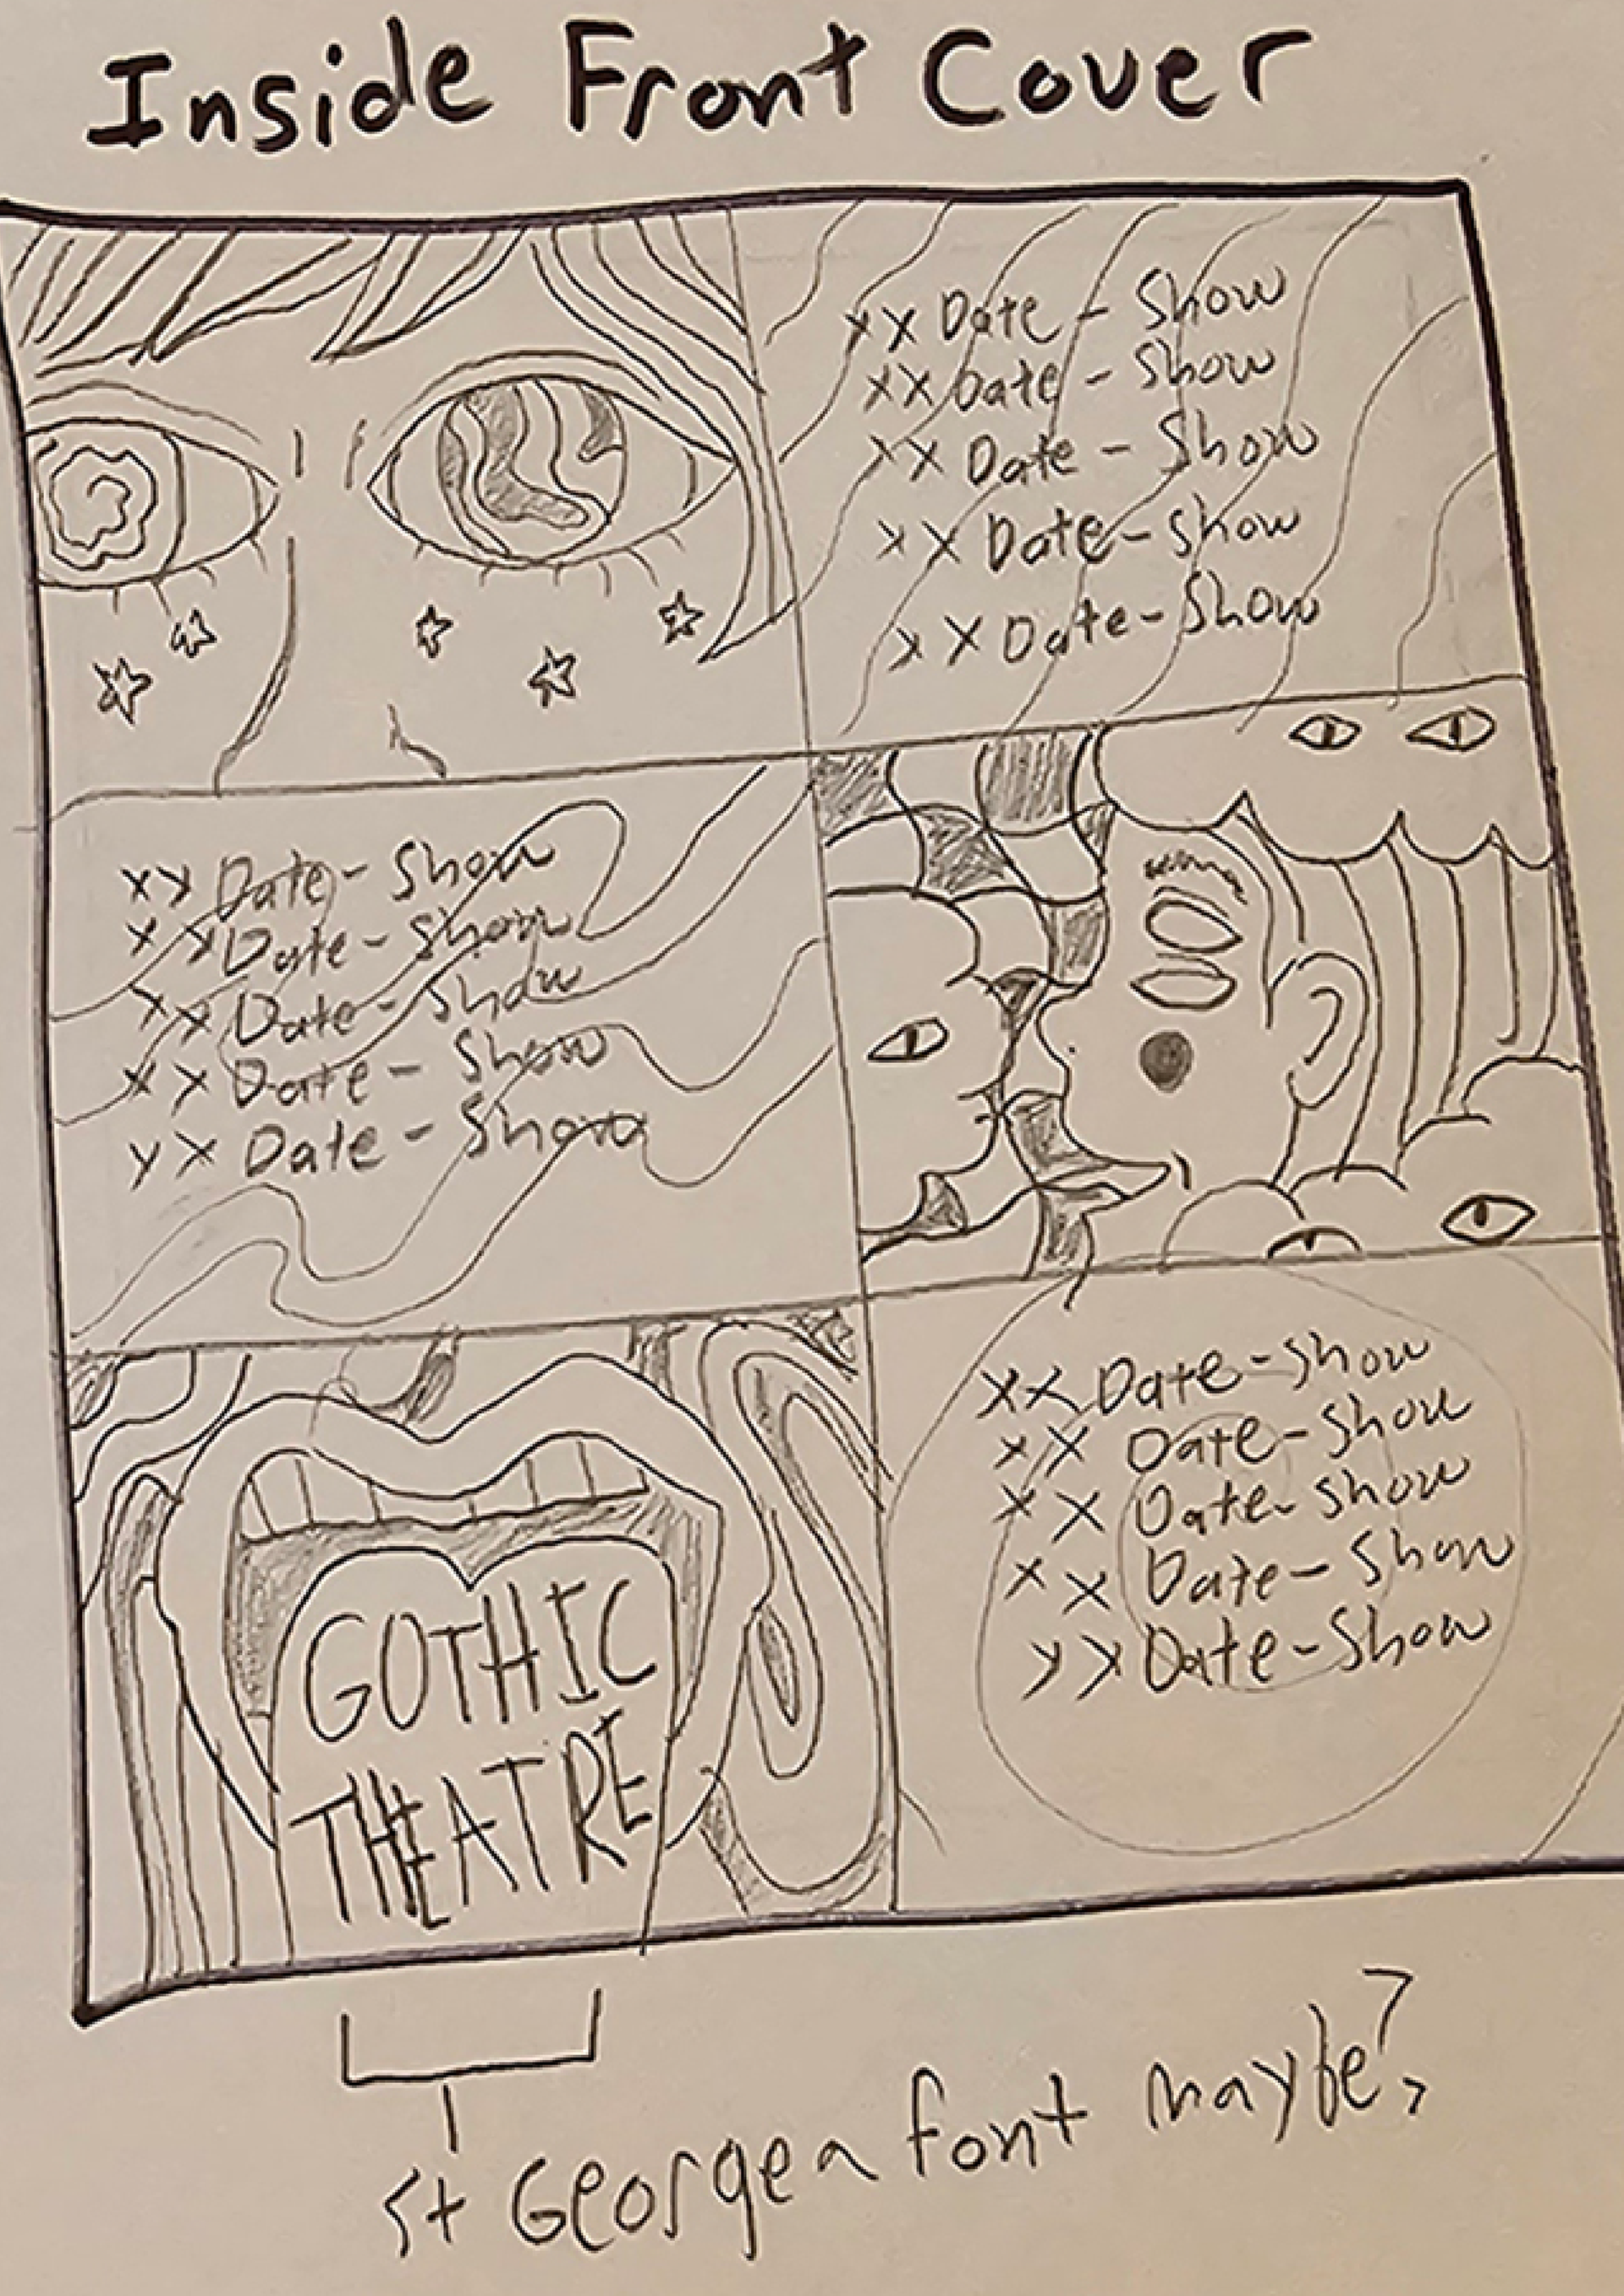 Inside Front Cover
XX Date - Show
XX Date - Show
XX Date - Show
XX Date - Show
XX Date - Show
XX Date - Show
XX Date - Show
XX Date - Show
XX Date - Show
XX Date - Show
GOTHIC
THEATRE
XX Date - Show
XX Date - Show
XX Date - Show
XX Date - Show
XX Date - Show
St George font maybe?